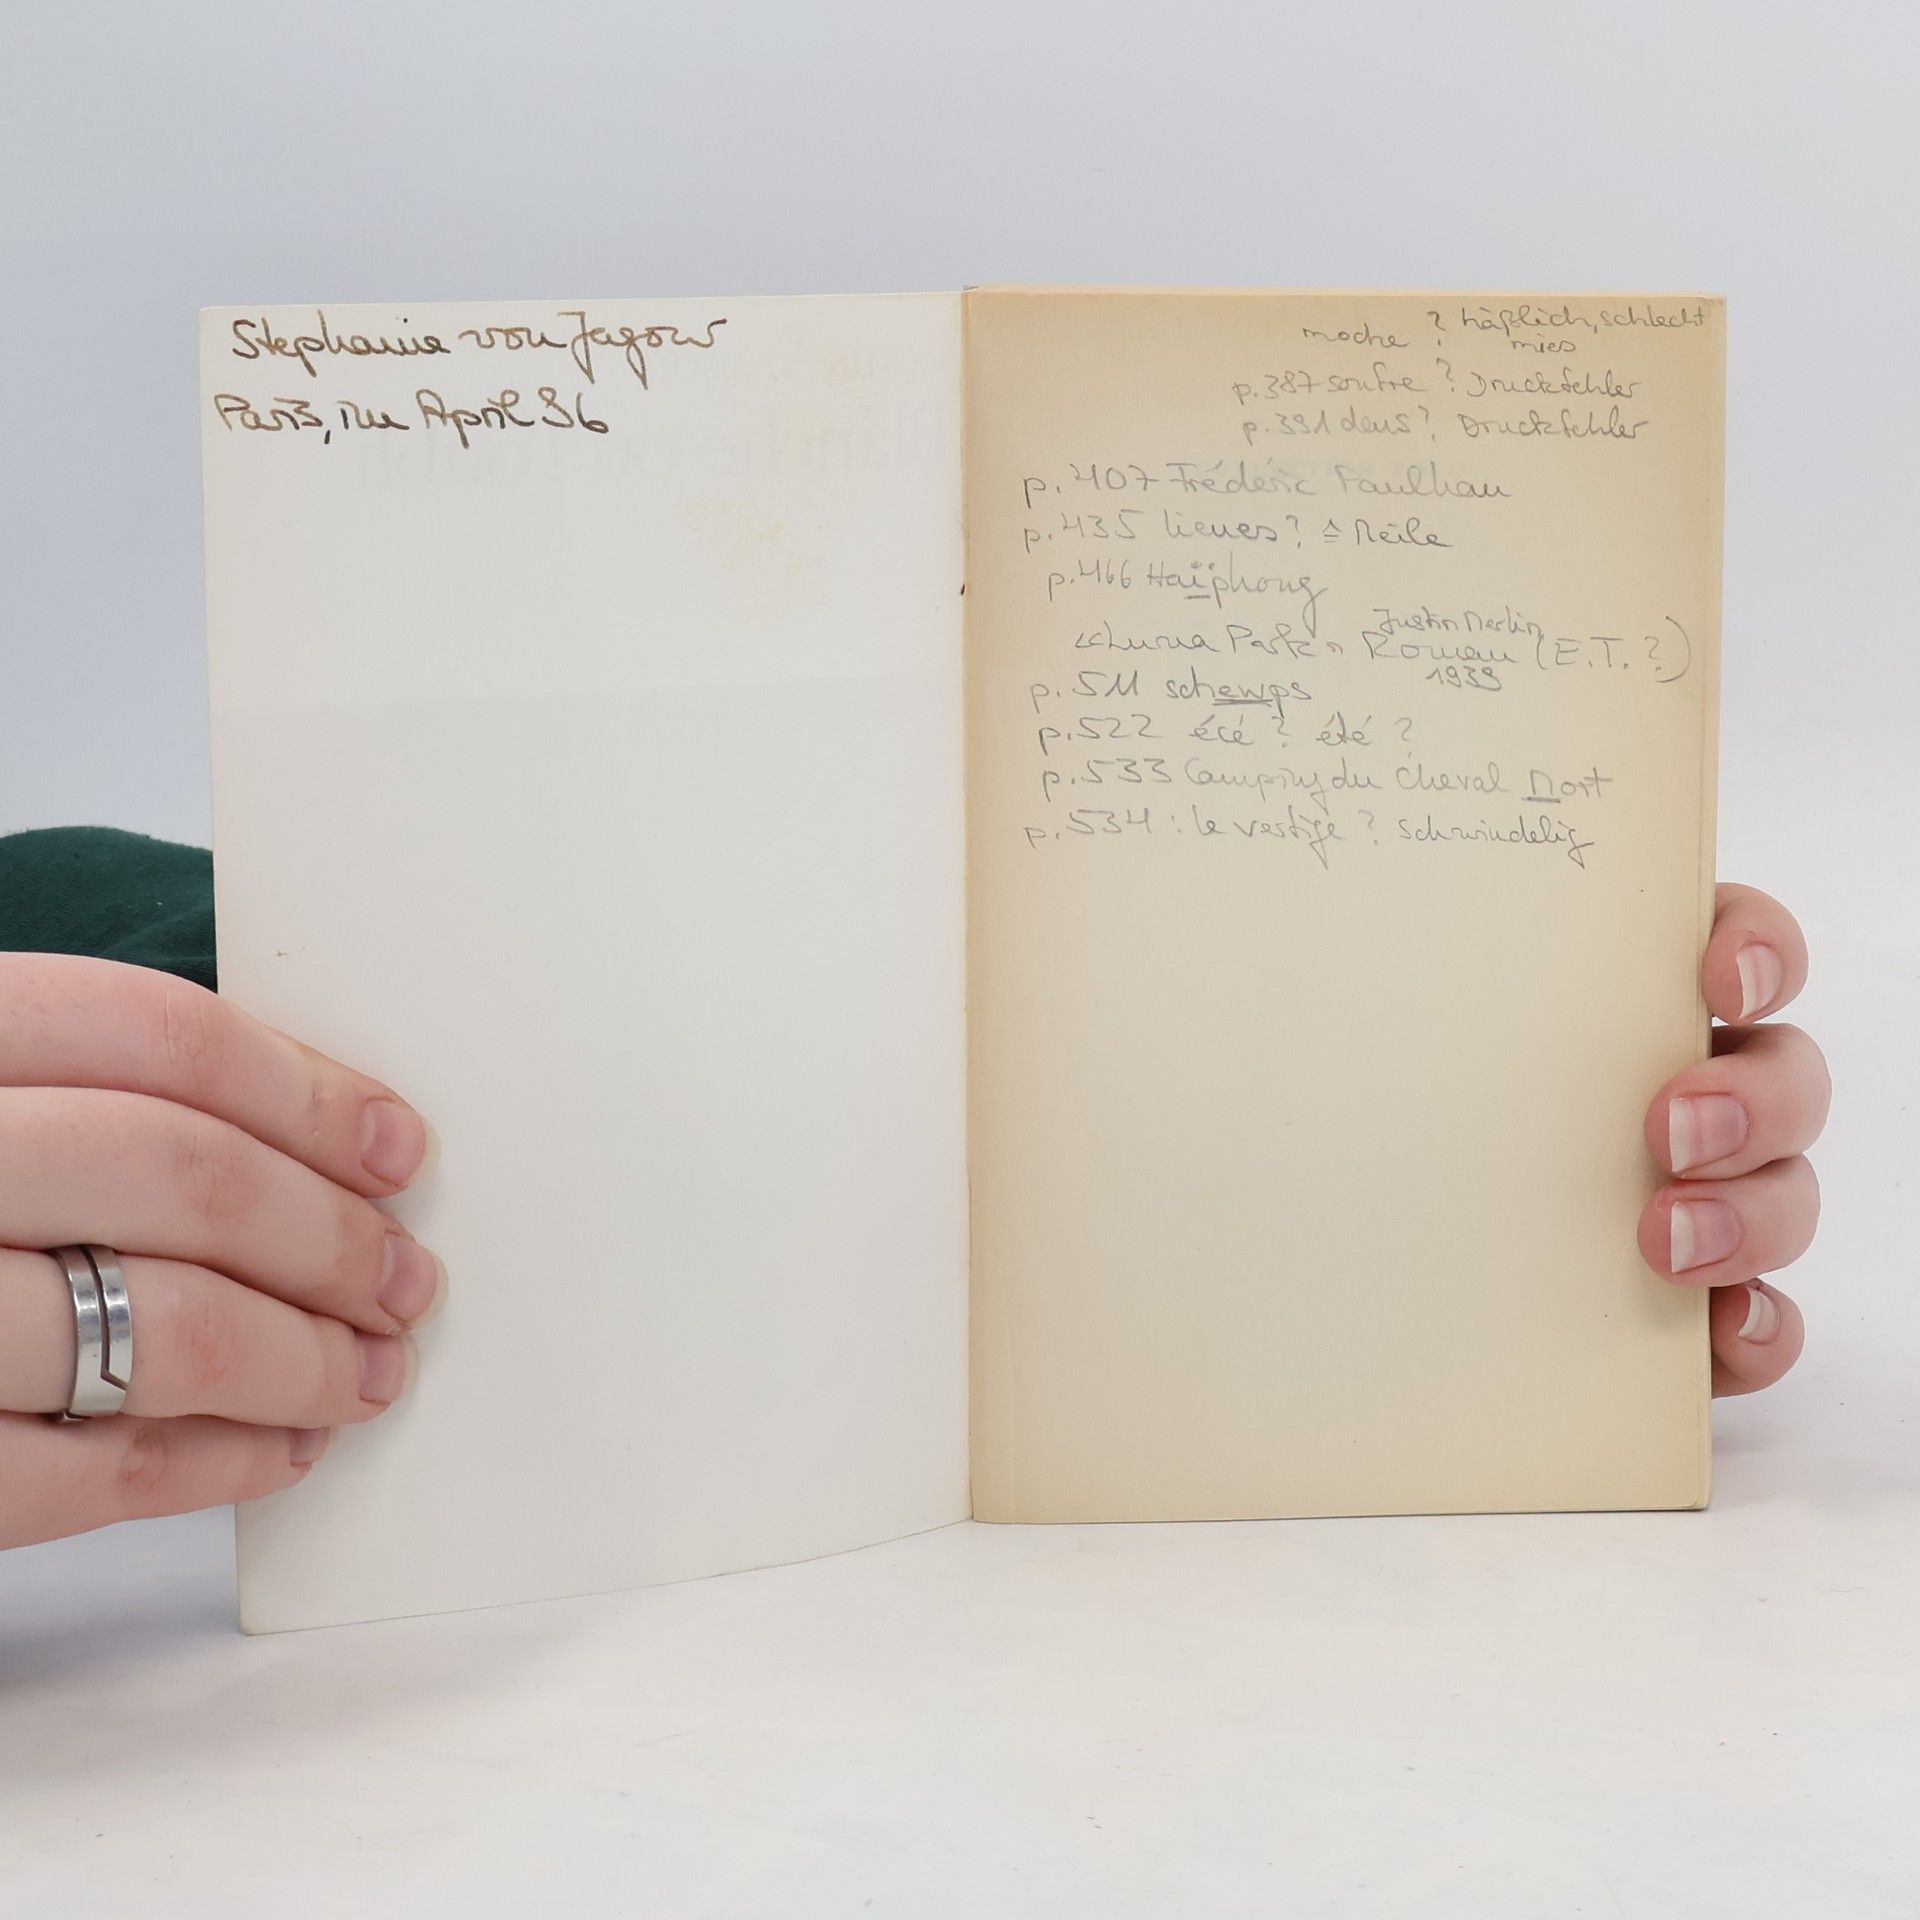 Stephanie von Jagow
Paris, im April 96
moche ? häßlich, schlecht
mies
p. 387 soufre ? Druckfehler
p. 391 dens ? Druckfehler
p. 407 Frédéric Paulhan
p. 435 lieues ? ≙ Meile
p. 466 Haïphong
Justin Merlin
«Luna Park» Roman (E.T. ?)
1939
p. 511 schewps
p. 522 écé ? été ?
p. 533 Camping du Cheval Mort
p. 534 : le vertige ? schwindelig